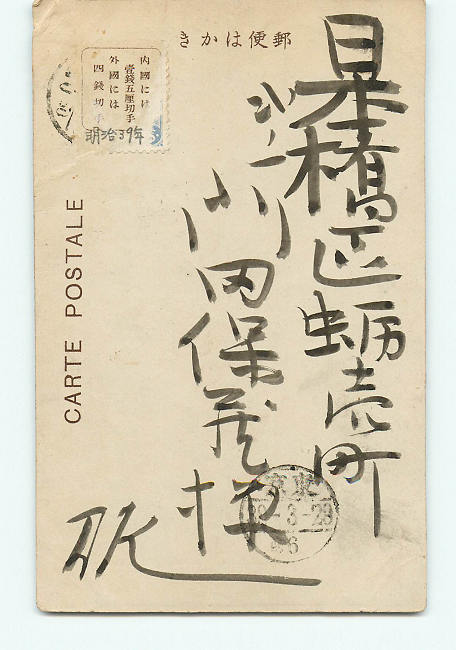 郵便はかき
内國には
壹錢五厘切手
外國には
四錢切手
明治39年
CARTE POSTALE
日本橋区蛎壳町
川田保蔵様
-3-23